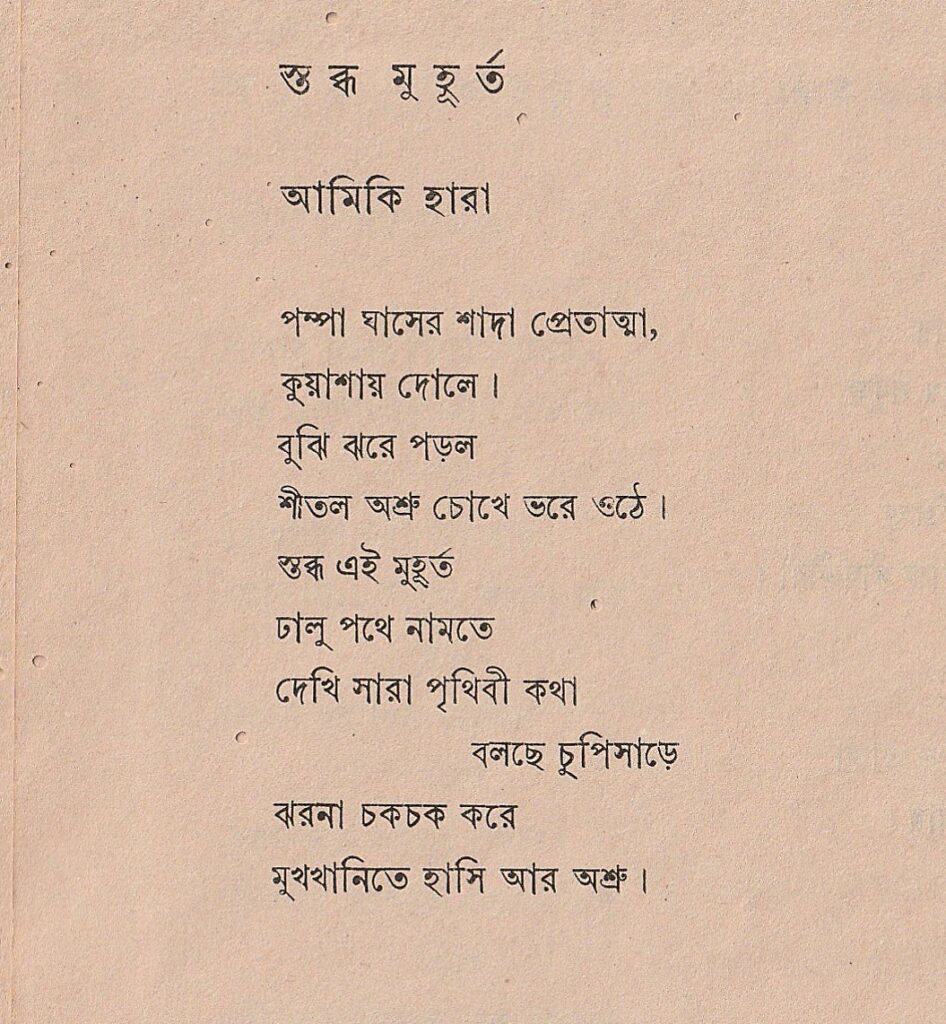 স্তব্ধ মুহূর্ত
আমিকি হারা
পম্পা ঘাসের শাদা প্রেতাত্মা,
কুয়াশায় দোলে।
বুঝি ঝরে পড়ল
শীতল অশ্রু চোখে ভরে ওঠে।
স্তব্ধ এই মুহূর্ত
ঢালু পথে নামতে
দেখি সারা পৃথিবী কথা
বলছে চুপিসাড়ে
ঝরনা চকচক করে
মুখখানিতে হাসি আর অশ্রু।